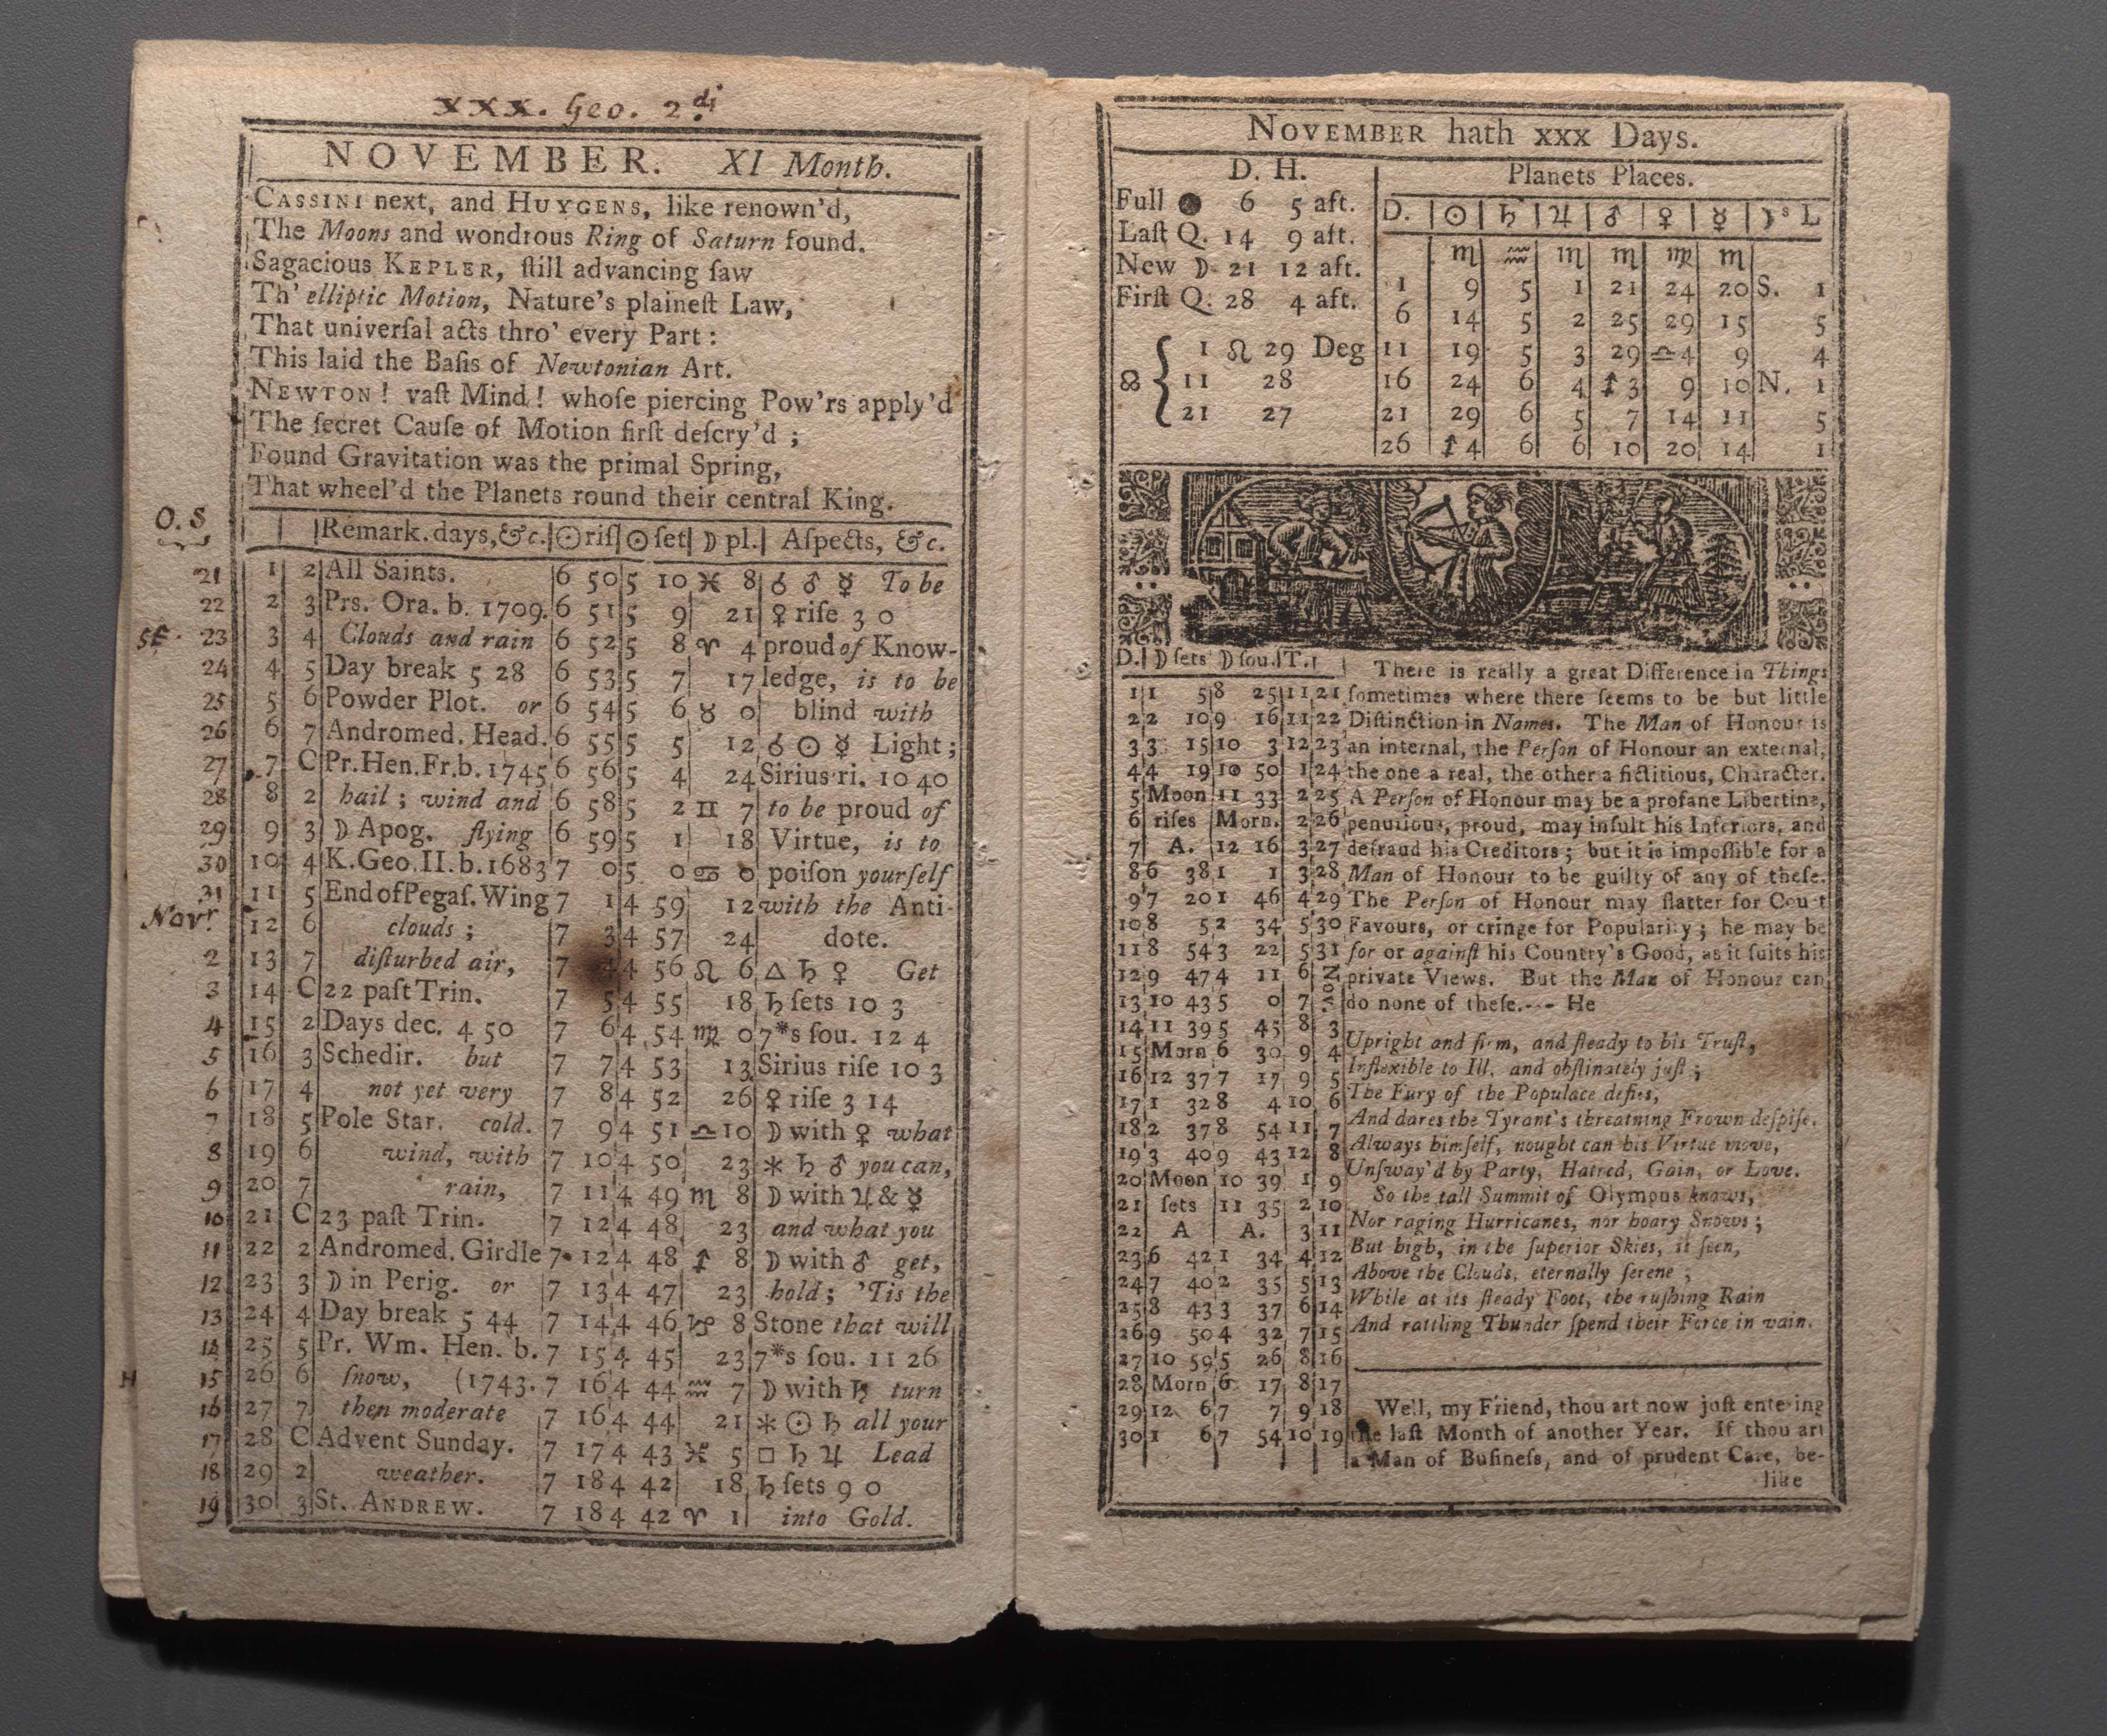 xxx. Geo. 2.di
NOVEMBER. XI Month.
CASSINI next, and HUYGENS, like renown'd,
The Moons and wondrous Ring of Saturn found.
Sagacious KEPLER, ſtill advancing ſaw
Th' elliptic Motion, Nature's plaineſt Law,
That univerſal acts thro' every Part:
This laid the Baſis of Newtonian Art.
NEWTON! vaſt Mind! whoſe piercing Pow'rs apply'd
The ſecret Cauſe of Motion firſt deſcry'd;
Found Gravitation was the primal Spring,
That wheel'd the Planets round their central King.
O.S
Remark. days, &c. ☉riſ ☉ſet ☽ pl. Aſpects, &c.
21 1 2 All Saints. 6 50 5 10 ♓ 8 ☌ ♂ ☿ To be
22 2 3 Prs. Ora. b. 1709. 6 51 5 9 21 ♀ riſe 3 0
23 3 4 Clouds and rain 6 52 5 8 ♈ 4 proud of Know-
24 4 5 Day break 5 28 6 53 5 7 17 ledge, is to be
25 5 6 Powder Plot. or 6 54 5 6 ♉ 0 blind with
26 6 7 Andromed. Head. 6 55 5 5 12 ☌ ☉ ☿ Light;
27 7 C Pr. Hen. Fr. b. 1745 6 56 5 4 24 Sirius ri. 10 40
28 8 2 hail; wind and 6 58 5 2 ♊ 7 to be proud of
29 9 3 ☽ Apog. flying 6 59 5 1 18 Virtue, is to
30 10 4 K. Geo. II. b. 1683 7 0 5 0 ♋ 0 poiſon yourſelf
31 11 5 End of Pegaſ. Wing 7 1 4 59 12 with the Anti-
Novr. 12 6 clouds; 7 3 4 57 24 dote.
2 13 7 diſturbed air, 7 4 4 56 ♌ 6 △ ♄ ♀ Get
3 14 C 22 paſt Trin. 7 5 4 55 18 ♄ ſets 10 3
4 15 2 Days dec. 4 50 7 6 4 54 ♍ 0 7*s ſou. 12 4
5 16 3 Schedir. but 7 7 4 53 13 Sirius riſe 10 3
6 17 4 not yet very 7 8 4 52 26 ♀ riſe 3 14
7 18 5 Pole Star. cold. 7 9 4 51 ♎ 10 ☽ with ♀ what
8 19 6 wind, with 7 10 4 50 23 ⚹ ♄ ♂ you can,
9 20 7 rain, 7 11 4 49 ♏ 8 ☽ with ♃ & ☿
10 21 C 23 paſt Trin. 7 12 4 48 23 and what you
11 22 2 Andromed. Girdle 7 12 4 48 ♐ 8 ☽ with ♂ get,
12 23 3 ☽ in Perig. or 7 13 4 47 23 hold; 'Tis the
13 24 4 Day break 5 44 7 14 4 46 ♑ 8 Stone that will
14 25 5 Pr. Wm. Hen. b. 7 15 4 45 23 7*s ſou. 11 26
H 15 26 6 ſnow, (1743. 7 16 4 44 ♒ 7 ☽ with ♄ turn
16 27 7 then moderate 7 16 4 44 21 ⚹ ☉ ♄ all your
17 28 C Advent Sunday. 7 17 4 43 ♓ 5 □ ♄ ♃ Lead
18 29 2 weather. 7 18 4 42 18 ♄ ſets 9 0
19 30 3 St. ANDREW. 7 18 4 42 ♈ 1 into Gold.
NOVEMBER hath xxx Days.
D. H.
Full ● 6 5 aft.
Laſt Q. 14 9 aft.
New ☽ 21 12 aft.
Firſt Q. 28 4 aft.
☊ { 1 ♌ 29 Deg
11 28
21 27
Planets Places.
D. ☉ ♄ ♃ ♂ ♀ ☿ ☽s L
♏ ♒ ♏ ♏ ♍ ♏
1 9 5 1 21 24 20 S. 1
6 14 5 2 25 29 15 5
11 19 5 3 29 ♎ 4 9 4
16 24 6 4 ♐ 3 9 10 N. 1
21 29 6 5 7 14 11 5
26 ♐ 4 6 6 10 20 14 1
D. ☽ ſets ☽ ſou. T.
1 1 5 8 25 11 21
2 2 10 9 16 11 22
3 3 15 10 3 12 23
4 4 19 10 50 1 24
5 Moon 11 33 2 25
6 riſes Morn. 2 26
7 A. 12 16 3 27
8 6 38 1 1 3 28
9 7 20 1 46 4 29
10 8 5 2 34 5 30
11 8 54 3 22 5 31
12 9 47 4 11 6 Nov.
13 10 43 5 0 7
14 11 39 5 45 8 3
15 Morn 6 30 9 4
16 12 37 7 17 9 5
17 1 32 8 4 10 6
18 2 37 8 54 11 7
19 3 40 9 43 12 8
20 Moon 10 39 1 9
21 ſets 11 35 2 10
22 A A. 3 11
23 6 42 1 34 4 12
24 7 40 2 35 5 13
25 8 43 3 37 6 14
26 9 50 4 32 7 15
27 10 59 5 26 8 16
28 Morn 6 17 8 17
29 12 6 7 7 9 18
30 1 6 7 54 10 19
There is really a great Difference in Things
ſometimes where there ſeems to be but little
Diſtinction in Names. The Man of Honour is
an internal, the Perſon of Honour an external,
the one a real, the other a fictitious, Character.
A Perſon of Honour may be a profane Libertine,
penurious, proud, may inſult his Inferiors, and
defraud his Creditors; but it is impoſſible for a
Man of Honour to be guilty of any of theſe.
The Perſon of Honour may flatter for Court
Favours, or cringe for Popularity; he may be
for or againſt his Country's Good, as it ſuits his
private Views. But the Man of Honour can
do none of theſe.--- He
Upright and firm, and ſteady to his Truſt,
Inflexible to Ill, and obſtinately juſt;
The Fury of the Populace defies,
And dares the Tyrant's threatning Frown deſpiſe.
Always himſelf, nought can his Virtue move,
Unſway'd by Party, Hatred, Gain, or Love.
So the tall Summit of Olympus knows,
Nor raging Hurricanes, nor hoary Snows;
But high, in the ſuperior Skies, is ſeen,
Above the Clouds, eternally ſerene;
While at its ſteady Foot, the ruſhing Rain
And rattling Thunder ſpend their Force in vain.
Well, my Friend, thou art now juſt entering
the laſt Month of another Year. If thou art
a Man of Buſineſs, and of prudent Care, be-
like